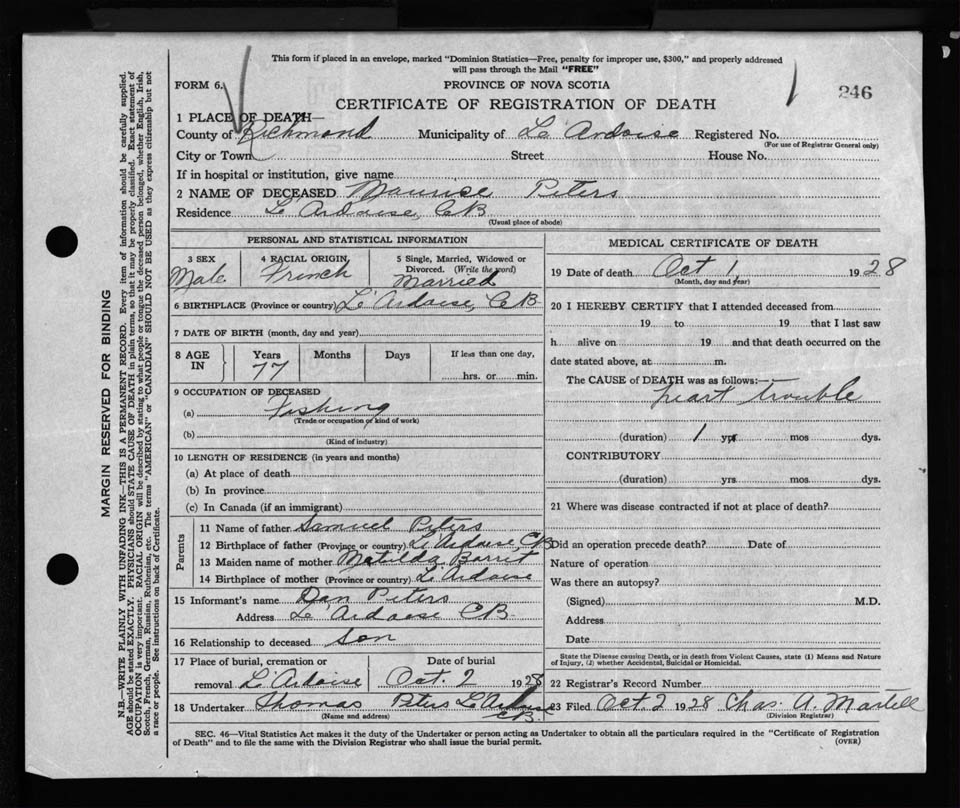 This form if placed in an envelope, marked "Dominion Statistics—Free, penalty for improper use, $300," and properly addressed
will pass through the Mail "FREE"
FORM 6.
PROVINCE OF NOVA SCOTIA
246
CERTIFICATE OF REGISTRATION OF DEATH
1 PLACE OF DEATH—
County of Richmond Municipality of L'Ardoise Registered No.
(For use of Registrar General only)
City or Town Street House No.
If in hospital or institution, give name
2 NAME OF DECEASED Maurice Peters
Residence L'Ardoise, CB
(Usual place of abode)
PERSONAL AND STATISTICAL INFORMATION
3 SEX 4 RACIAL ORIGIN 5 Single, Married, Widowed or
Divorced. (Write the word)
Male French Married
6 BIRTHPLACE (Province or country) L'Ardoise, CB
7 DATE OF BIRTH (month, day and year)
8 AGE IN Years Months Days If less than one day,
77 hrs. or min.
9 OCCUPATION OF DECEASED
(a) Fishing
(Trade or occupation or kind of work)
(b)
(Kind of industry)
10 LENGTH OF RESIDENCE (in years and months)
(a) At place of death
(b) In province
(c) In Canada (if an immigrant)
Parents
11 Name of father Samuel Peters
12 Birthplace of father (Province or country) L'Ardoise, CB
13 Maiden name of mother Matilda
14 Birthplace of mother (Province or country) L'Ardoise
15 Informant's name Dan Peters
Address L'Ardoise CB
16 Relationship to deceased Son
17 Place of burial, cremation or Date of burial
removal L'Ardoise Oct. 2 1928
18 Undertaker Thomas Peters L'Ardoise
CB
(Name and address)
MEDICAL CERTIFICATE OF DEATH
19 Date of death Oct 1, 1928
(Month, day and year)
20 I HEREBY CERTIFY that I attended deceased from
19 to 19 that I last saw
h alive on 19 and that death occurred on the
date stated above, at m.
The CAUSE of DEATH was as follows:—
heart trouble
(duration) 1 yrs mos dys.
CONTRIBUTORY
(duration) yrs mos dys.
21 Where was disease contracted if not at place of death?
Did an operation precede death? Date of
Nature of operation
Was there an autopsy?
(Signed) M.D.
Address
Date
State the Disease causing Death, or in death from Violent Causes, state (1) Means and Nature
of Injury, (2) whether Accidental, Suicidal or Homicidal.
22 Registrar's Record Number
23 Filed Oct 2 1928 Chas. A. Martell
(Division Registrar)
SEC. 46—Vital Statistics Act makes it the duty of the Undertaker or person acting as Undertaker to obtain all the particulars required in the "Certificate of Registration
of Death" and to file the same with the Division Registrar who shall issue the burial permit.
(OVER)
MARGIN RESERVED FOR BINDING
N.B.—WRITE PLAINLY WITH UNFADING INK—THIS IS A PERMANENT RECORD. Every item of information should be carefully supplied.
AGE should be stated EXACTLY. PHYSICIANS should STATE CAUSE OF DEATH in plain terms, so that it may be properly classified. Exact statement of
OCCUPATION is very important. RACIAL ORIGIN will be described by stating to what people or tongue the deceased person belonged, whether English, Irish,
Scotch, French, German, Russian, Ruthenian, etc. The terms "AMERICAN" or "CANADIAN" SHOULD NOT BE USED as they express citizenship but not
a race or people. See instructions on back of Certificate.